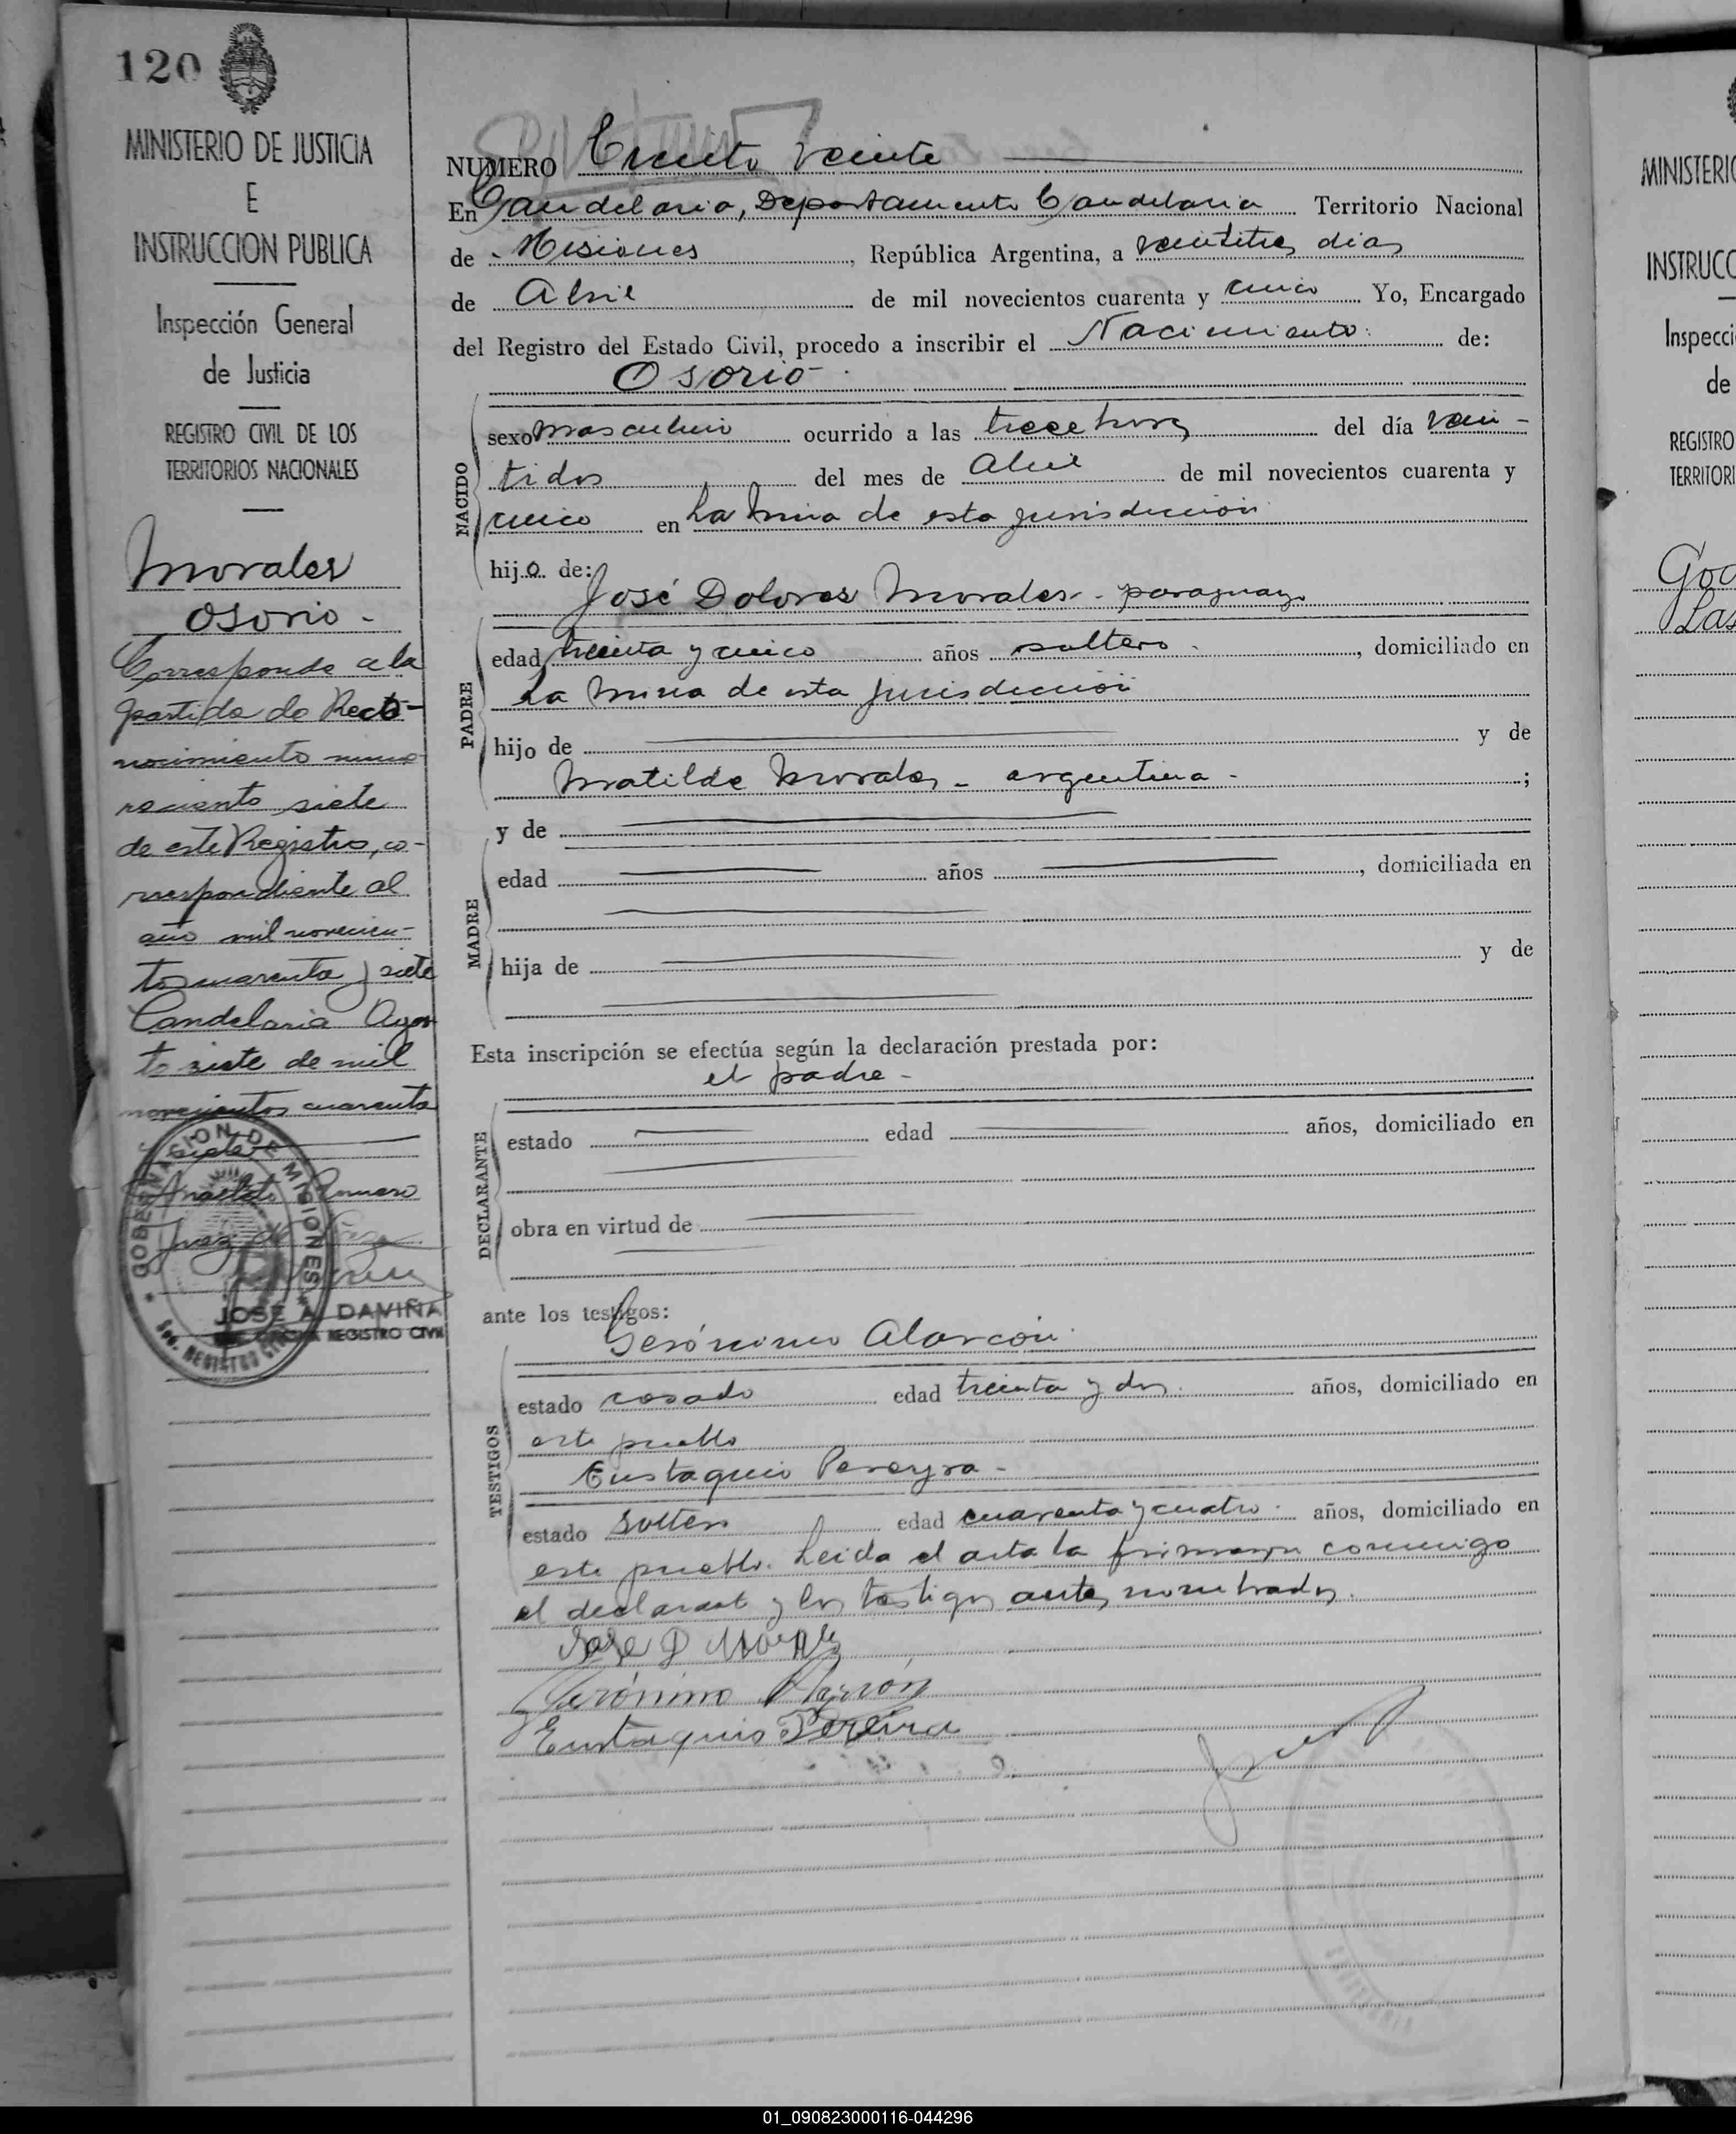 120
MINISTERIO DE JUSTICIA
E
INSTRUCCION PUBLICA
Inspección General
de Justicia
REGISTRO CIVIL DE LOS
TERRITORIOS NACIONALES
Morales
Osorio -
Corresponde a la
partida de Reco-
nocimiento nume-
ro ciento siete
de este Registro, co-
rrespondiente al
año mil novecien-
tos cuarenta y siete
Candelaria Agos
to siete de mil
novecientos cuarenta
siete
Anacleto Romero
Juez de Paz
GOBERNACION DE MISIONES
REGISTRO CIVIL
JOSE A. DAVIÑA
REGISTRO CIVIL
NUMERO Ciento veinte
En Candelaria, Departamento Candelaria Territorio Nacional
de Misiones, República Argentina, a veintitres dias
de Abril de mil novecientos cuarenta y cinco Yo, Encargado
del Registro del Estado Civil, procedo a inscribir el Nacimiento de:
Osorio
NACIDO
sexo masculino ocurrido a las trece horas del día vein-
tidos del mes de Abril de mil novecientos cuarenta y
cinco en La Mina de esta jurisdiccion
hijo de:
José Dolores Morales - paraguayo
PADRE
edad treinta y cinco años soltero, domiciliado en
La Mina de esta jurisdiccion
hijo de y de
Matilde Morales - argentina - ;
y de
MADRE
edad años, domiciliada en
hija de y de
Esta inscripción se efectúa según la declaración prestada por:
el padre -
DECLARANTE
estado edad años, domiciliado en
obra en virtud de
ante los testigos:
Gerónimo Alarcón
TESTIGOS
estado casado edad treinta y dos años, domiciliado en
este pueblo
Eustaquio Pereyra -
estado soltero edad cuarenta y cuatro años, domiciliado en
este pueblo. Leida el acta la firmaron conmigo
el declarante y los testigos antes nombrados.
Jose D Morales
Gerónimo Alarcón
Eustaquio Pereira
MINISTERIO
INSTRUCC
Inspecci
de
REGISTRO
TERRITORI
01_090823000116-044296